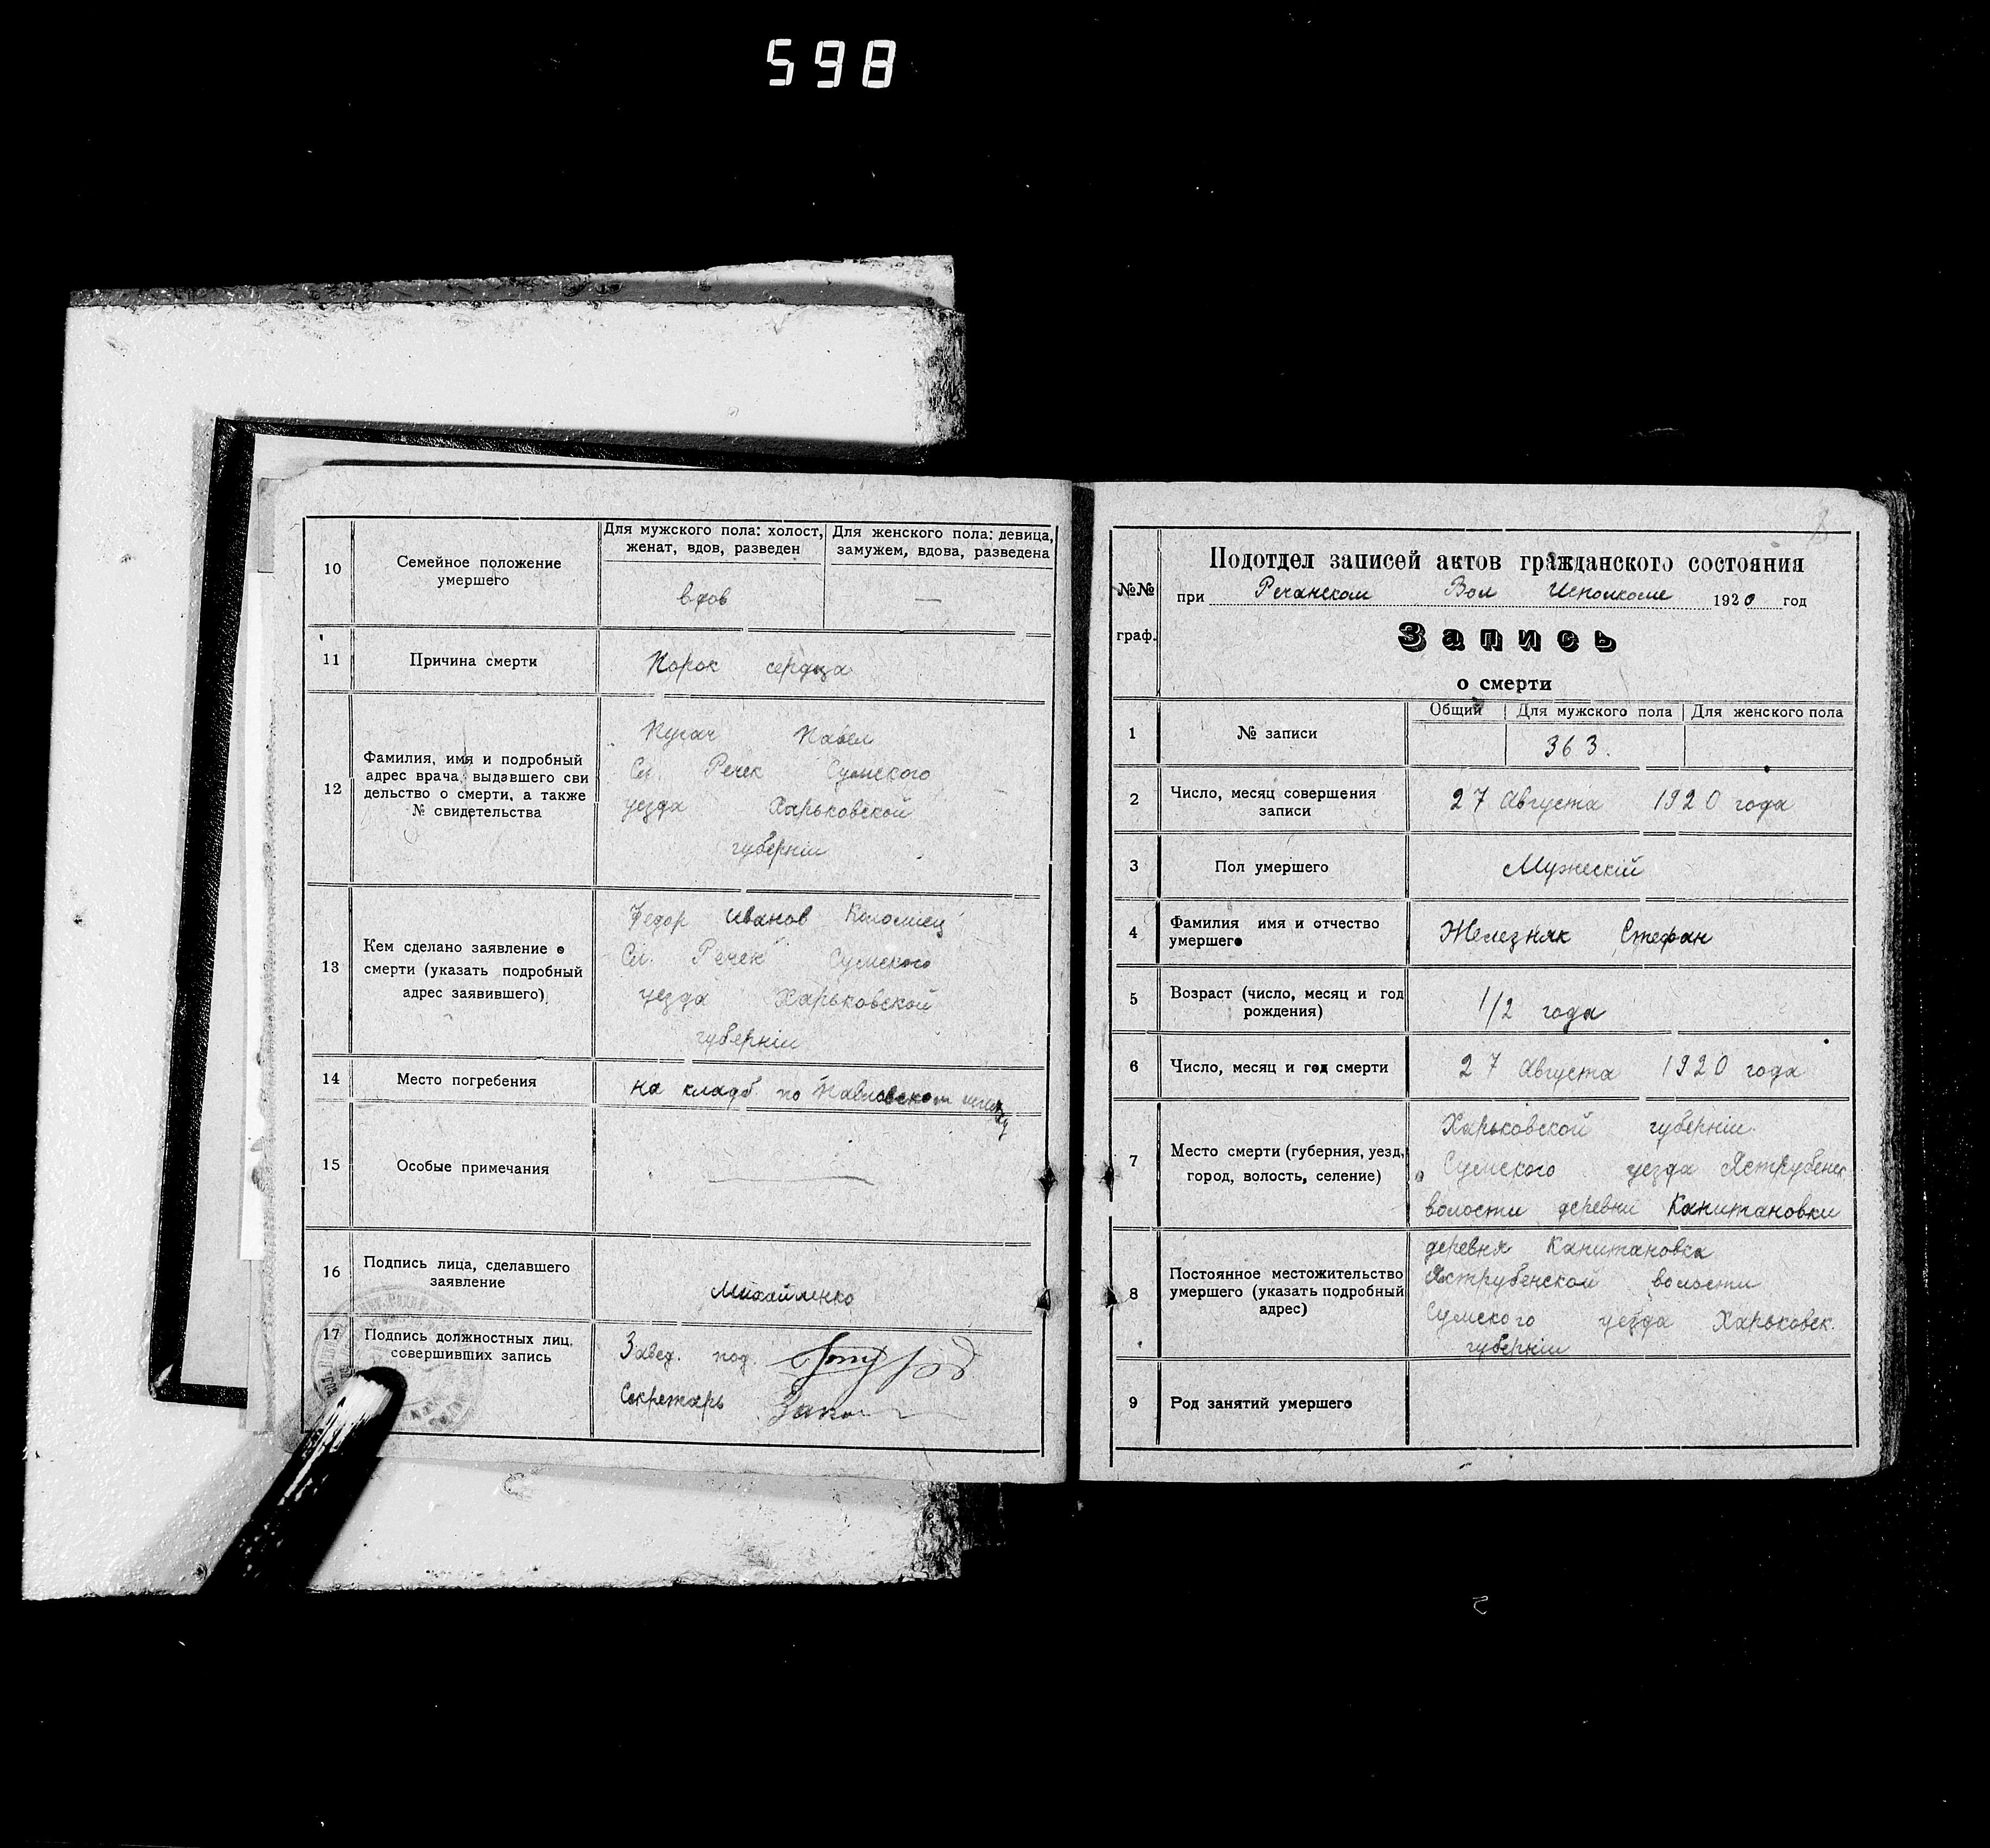 598
10
Семейное положение
умершего
Для мужского пола: холост,
женат, вдов, разведен
Для женского пола: девица,
замужем, вдова, разведена
вдов
—
11
Причина смерти
Порок сердца
12
Фамилия, имя и подробный
адрес врача, выдавшего сви
дельство о смерти, а также
№ свидетельства
Пугач Павел
Сл. Речек Сумского
уезда Харьковской
губерніи
13
Кем сделано заявление о
смерти (указать подробный
адрес заявившего)
Федор Иванов Коломиец
Сл. Речек Сумского
уезда Харьковской
губерніи
14
Место погребения
на кладб. по Павловском
15
Особые примечания
16
Подпись лица, сделавшего
заявление
Михайленко
17
Подпись должностных лиц,
совершивших запись
Завед. под.
Секретарь
№№
граф.
Подотдел записей актов гражданского состояния
при Речанском Вол Исполкоме 1920 год
Запись
о смерти
1
№ записи
Общий
Для мужского пола
Для женского пола
363.
2
Число, месяц совершения
записи
27 Августа 1920 года
3
Пол умершего
Мужескій
4
Фамилия имя и отчество
умершего
Железняк Стефан
5
Возраст (число, месяц и год
рождения)
1/2 года
6
Число, месяц и год смерти
27 Августа 1920 года
7
Место смерти (губерния, уезд,
город, волость, селение)
Харьковской губерніи
Сумского уезда Яструбенск.
волости деревни Капитановки
8
Постоянное местожительство
умершего (указать подробный
адрес)
деревня Капитановка
Яструбенской волости
Сумского уезда Харьковск.
губерніи
9
Род занятий умершего